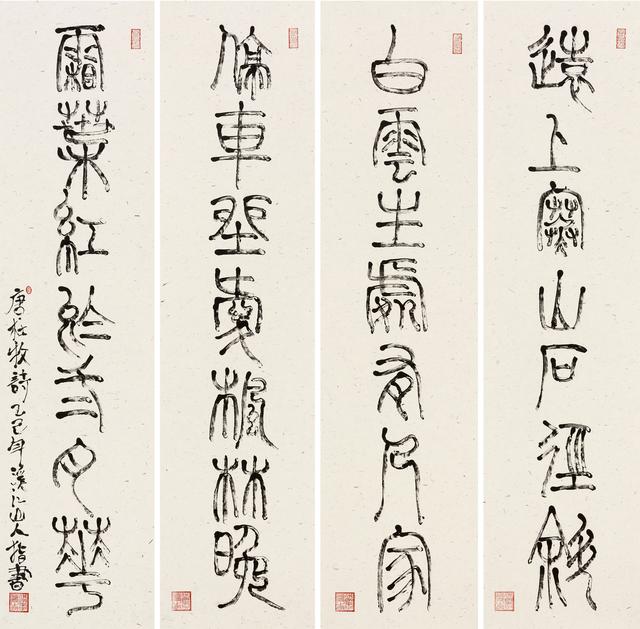 遠上寒山石徑斜
白雲生處有人家
停車坐愛楓林晚
霜葉紅於二月華
唐杜牧詩乙巳年山人指書